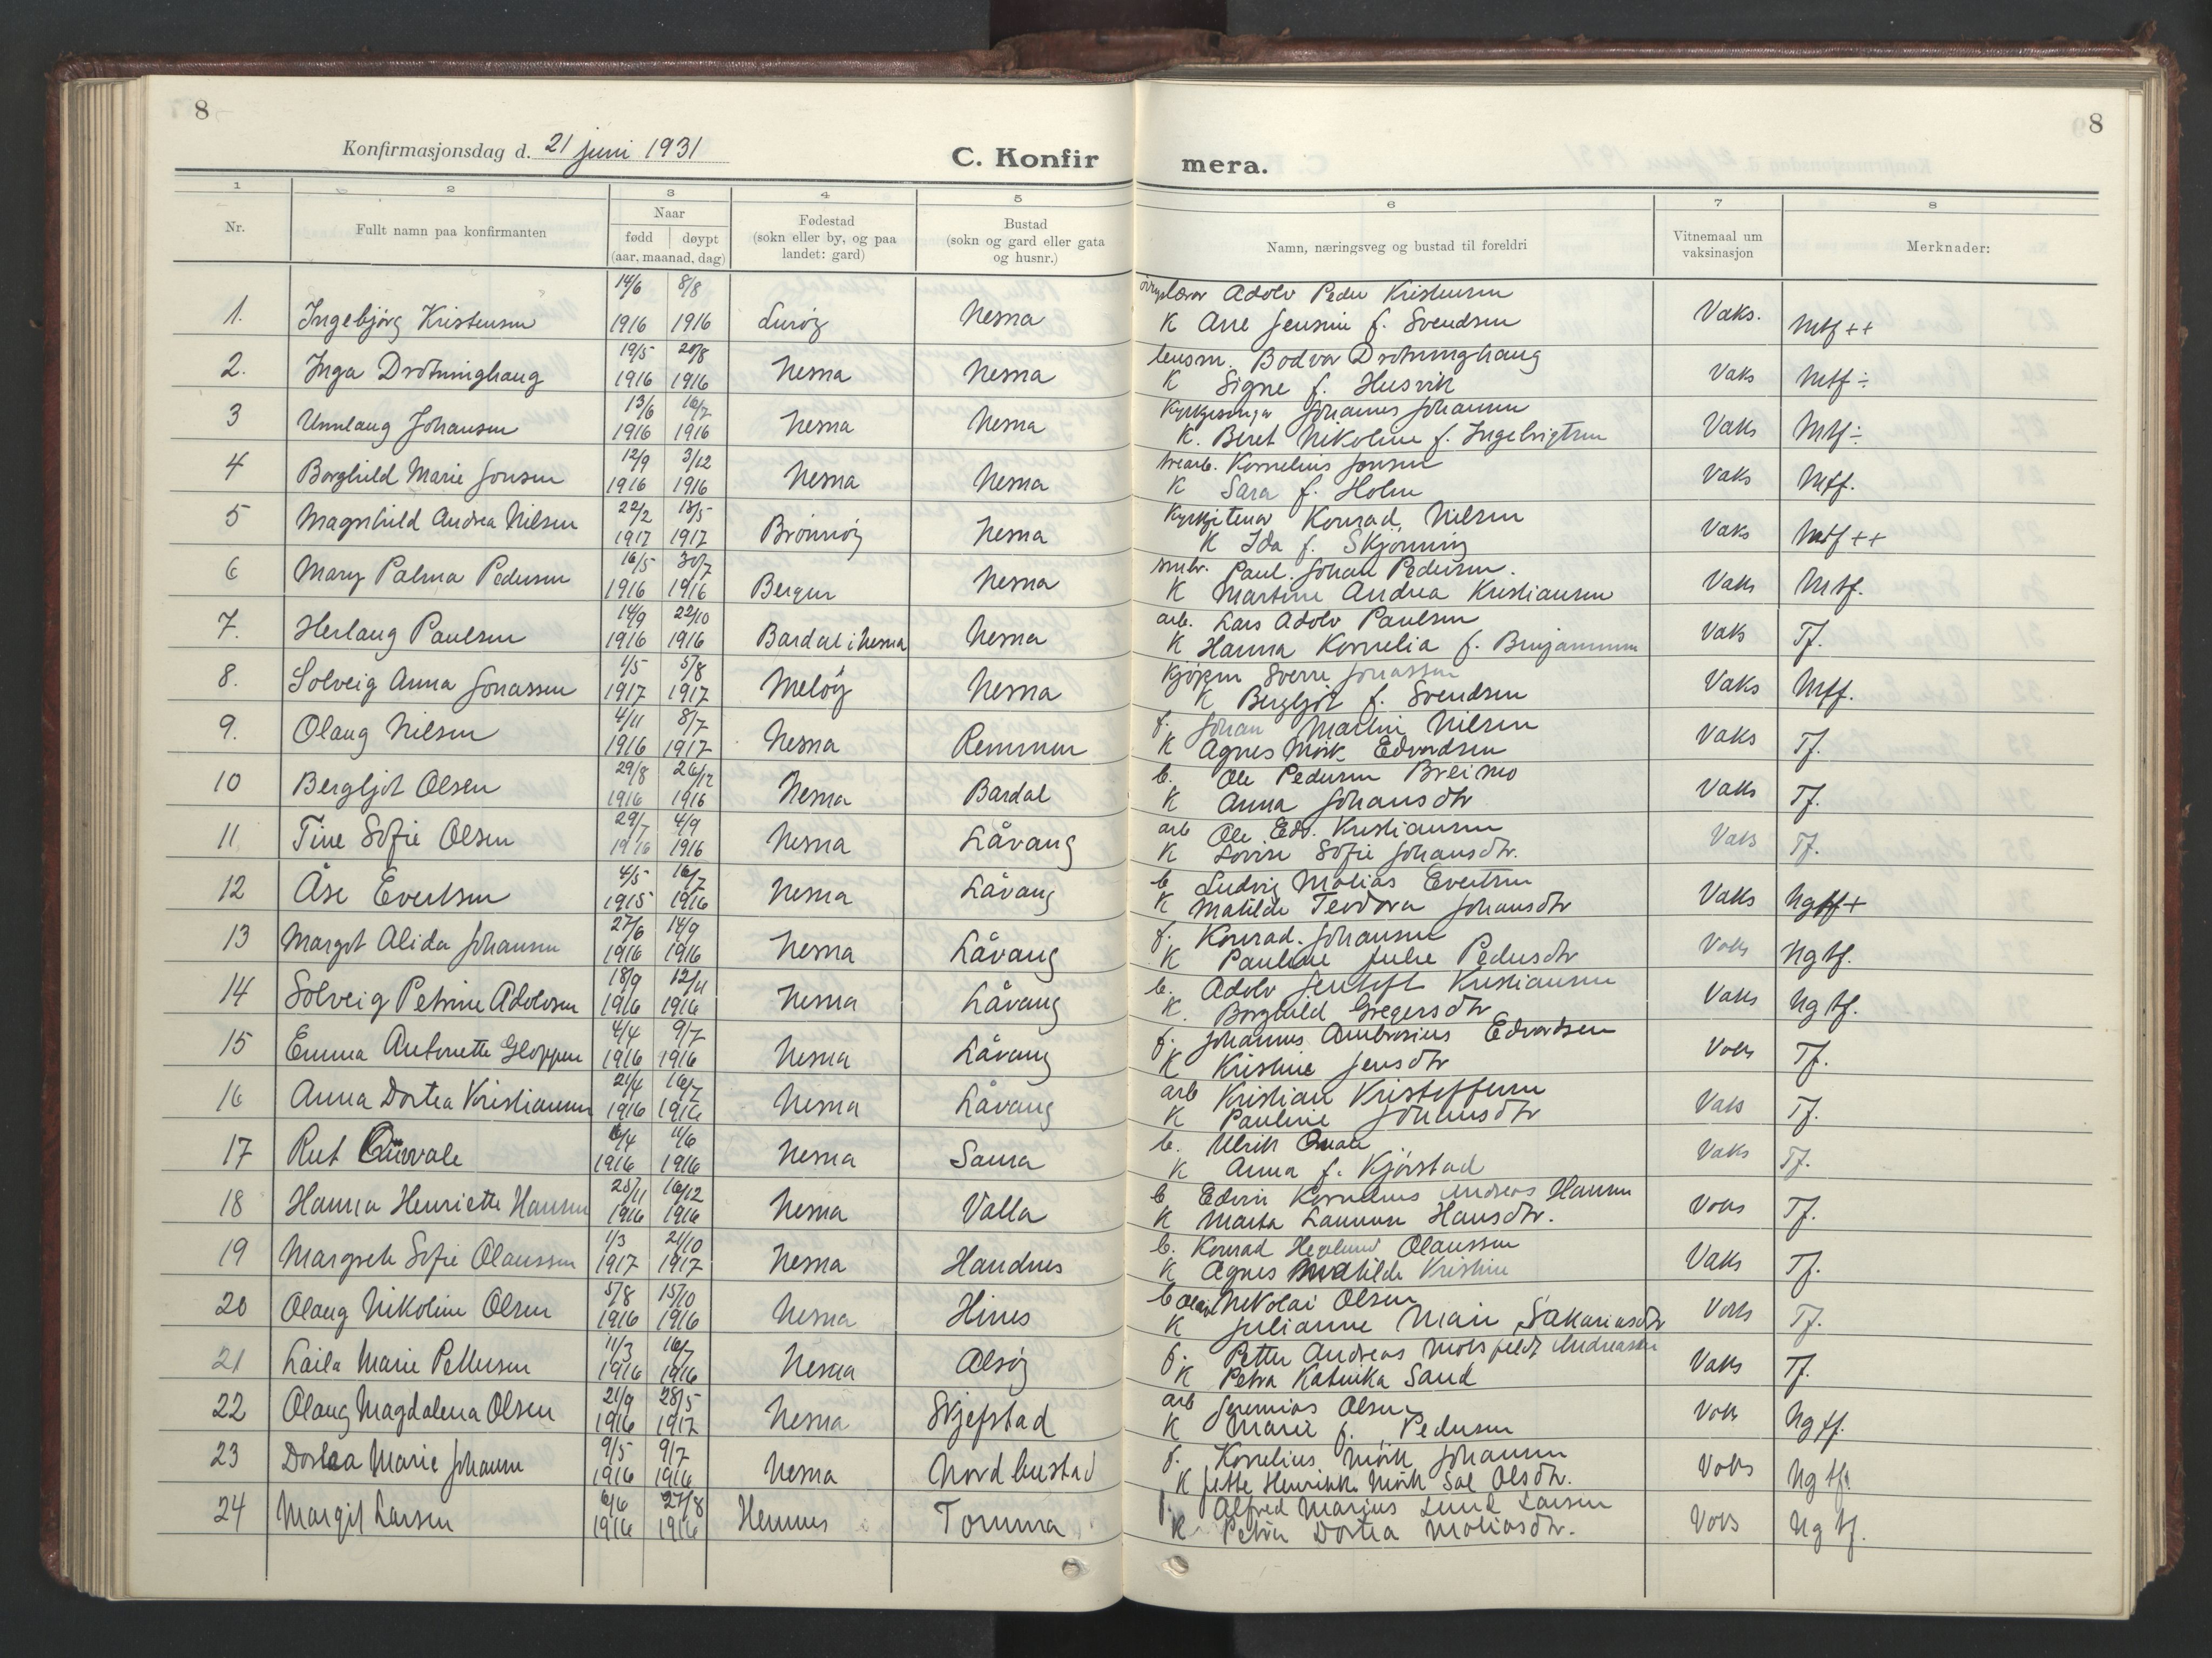 8
8
Konfirmasjonsdag d. 21 juni 1931
C. Konfir mera.
1 2 3 4 5 6 7 8
Nr. Fullt namn paa konfirmanten Naar fødd døypt (aar, maanad, dag) Fødestad (sokn eller by, og paa landet: gard) Bustad (sokn og gard eller gata og husnr.) Namn, næringsveg og bustad til foreldri Vitnemaal um vaksinasjon Merknader:
14/6 8/8 Adolv Peder Kristensen
1. Ingebjørg Kristensen 1916 1916 Lurøy Nesna K Ane Jensine f. Svendsen Vaks. Mtf ++
19/5 20/8 lensm. Bodvar Drotninghaug
2. Inga Drotninghaug 1916 1916 Nesna Nesna K Signe f. Husvik Vaks Mtf ÷
13/6 16/7 Kyrkjesongar Johannes Johansen
3 Unnlaug Johansen 1916 1916 Nesna Nesna K. Beret Nikoline f. Ingebrigtsen Vaks Mtf ÷
12/9 3/12 trearb. Kornelius Jensen
4 Borghild Marie Jensen 1916 1916 Nesna Nesna K Sara f. Holm Vaks Mtf.
22/2 13/5 Kyrkjetenar Konrad Nilsen
5 Magnhild Andrea Nilsen 1917 1917 Brønnøy Nesna K Ida f. Skjønning Vaks Mtf ++
16/5 30/7 smbr. Paul Johan Pedersen.
6 Mary Palma Pedersen 1916 1916 Bergen Nesna K Martine Andrea Kristiansen Vaks Mtf.
14/9 22/10 arb. Lars Adolv Paulsen
7. Herlaug Paulsen 1916 1916 Bardal i Nesna Nesna K Hanna Kornelia f. Benjaminsen Vaks Tf.
1/5 5/8 Kjøpm Sverre Jonassen
8. Solveig Anna Jonassen 1917 1917 Meløy Nesna K Bergljot f. Svendsen Vaks Mtf.
4/11 8/7 f. Johan Martin Nilsen
9. Olaug Nilsen 1916 1917 Nesna Remmen K Agnes Mörk Edvardsen Vaks Tf.
29/8 26/12 b. Ole Pedersen Breimo
10 Bergljot Olsen 1916 1916 Nesna Bardal K Anna Johansdtr Vaks Tf.
29/7 4/9 arb Ole Edv. Kristiansen
11 Tine Sofie Olsen 1916 1916 Nesna Låvang K Lovise Sofie Johansdtr. Vaks Tf.
4/5 16/7 b Ludvig Matias Evertsen
12 Åse Evertsen 1915 1916 Nesna Låvang K Matilde Teodora Johansdtr Vaks Ngtf +
27/6 14/9 f. Konrad Johansen
13 Margot Alida Johansen 1916 1916 Nesna Låvang K Pauline Julie Pedersdtr Vaks Ng tf.
18/9 12/11 b. Adolv Jentoft Kristiansen
14 Solveig Petrine Adolvsen 1916 1916 Nesna Låvang K. Borghild Gregersdtr Vaks Ng tf.
4/4 9/7 f. Johannes Ambrosius Edvardsen
15 Emma Antonette Gloppen 1916 1916 Nesna Låvang K Kristine Jensdtr Vaks Tf.
21/4 16/7 arb Kristian Kristoffersen
16 Anna Dortea Kristiansen 1916 1916 Nesna Låvang K Pauline Johansdtr Vaks Tf.
11/6 b. Ulrik
17 Rut 1916 1916 Nesna Sauna K Anna f. Kjørstad Vaks Tf.
16/12 b Edvin Kornelius Andreas Hansen
18 Hanna Henriette Hansen 1916 1916 Nesna Valla K Marta Hansdtr. Vaks Tf.
1/3 21/10 b. Konrad Olaussen
19 Margrete Sofie Olaussen 1917 1917 Nesna Handnes K Agnes Matilde Kristine Vaks Tf.
5/8 15/10 b Nikolai Olsen
20 Olaug Nikoline Olsen 1916 1916 Nesna Hines K Julianne Marie Sakariasdtr Vaks Tf.
11/3 16/7 f. Petter Andreas Andreassen
21 Laila Marie Pettersen 1916 1916 Nesna Alsøy K Petra Katinka Sand Vaks Tf.
21/9 28/5 arb Jeremias Olsen
22 Olaug Magdalena Olsen 1916 1917 Nesna Skjefstad K Marie f. Pedersen Vaks Ng tf.
9/5 9/7 f. Kornelius Mörk Johansen
23 Dortea Marie Johansen 1916 1916 Nesna Nordbustad K Jette Henrikke Mörk Sal Olsdtr. Vaks Ng tf.
6/6 27/8 f. Alfred Marius Lund Larsen
24 Margit Larsen 1916 1916 Hemnes Tomma K Petra Dortea Matiasdtr. Vaks Ng tf.